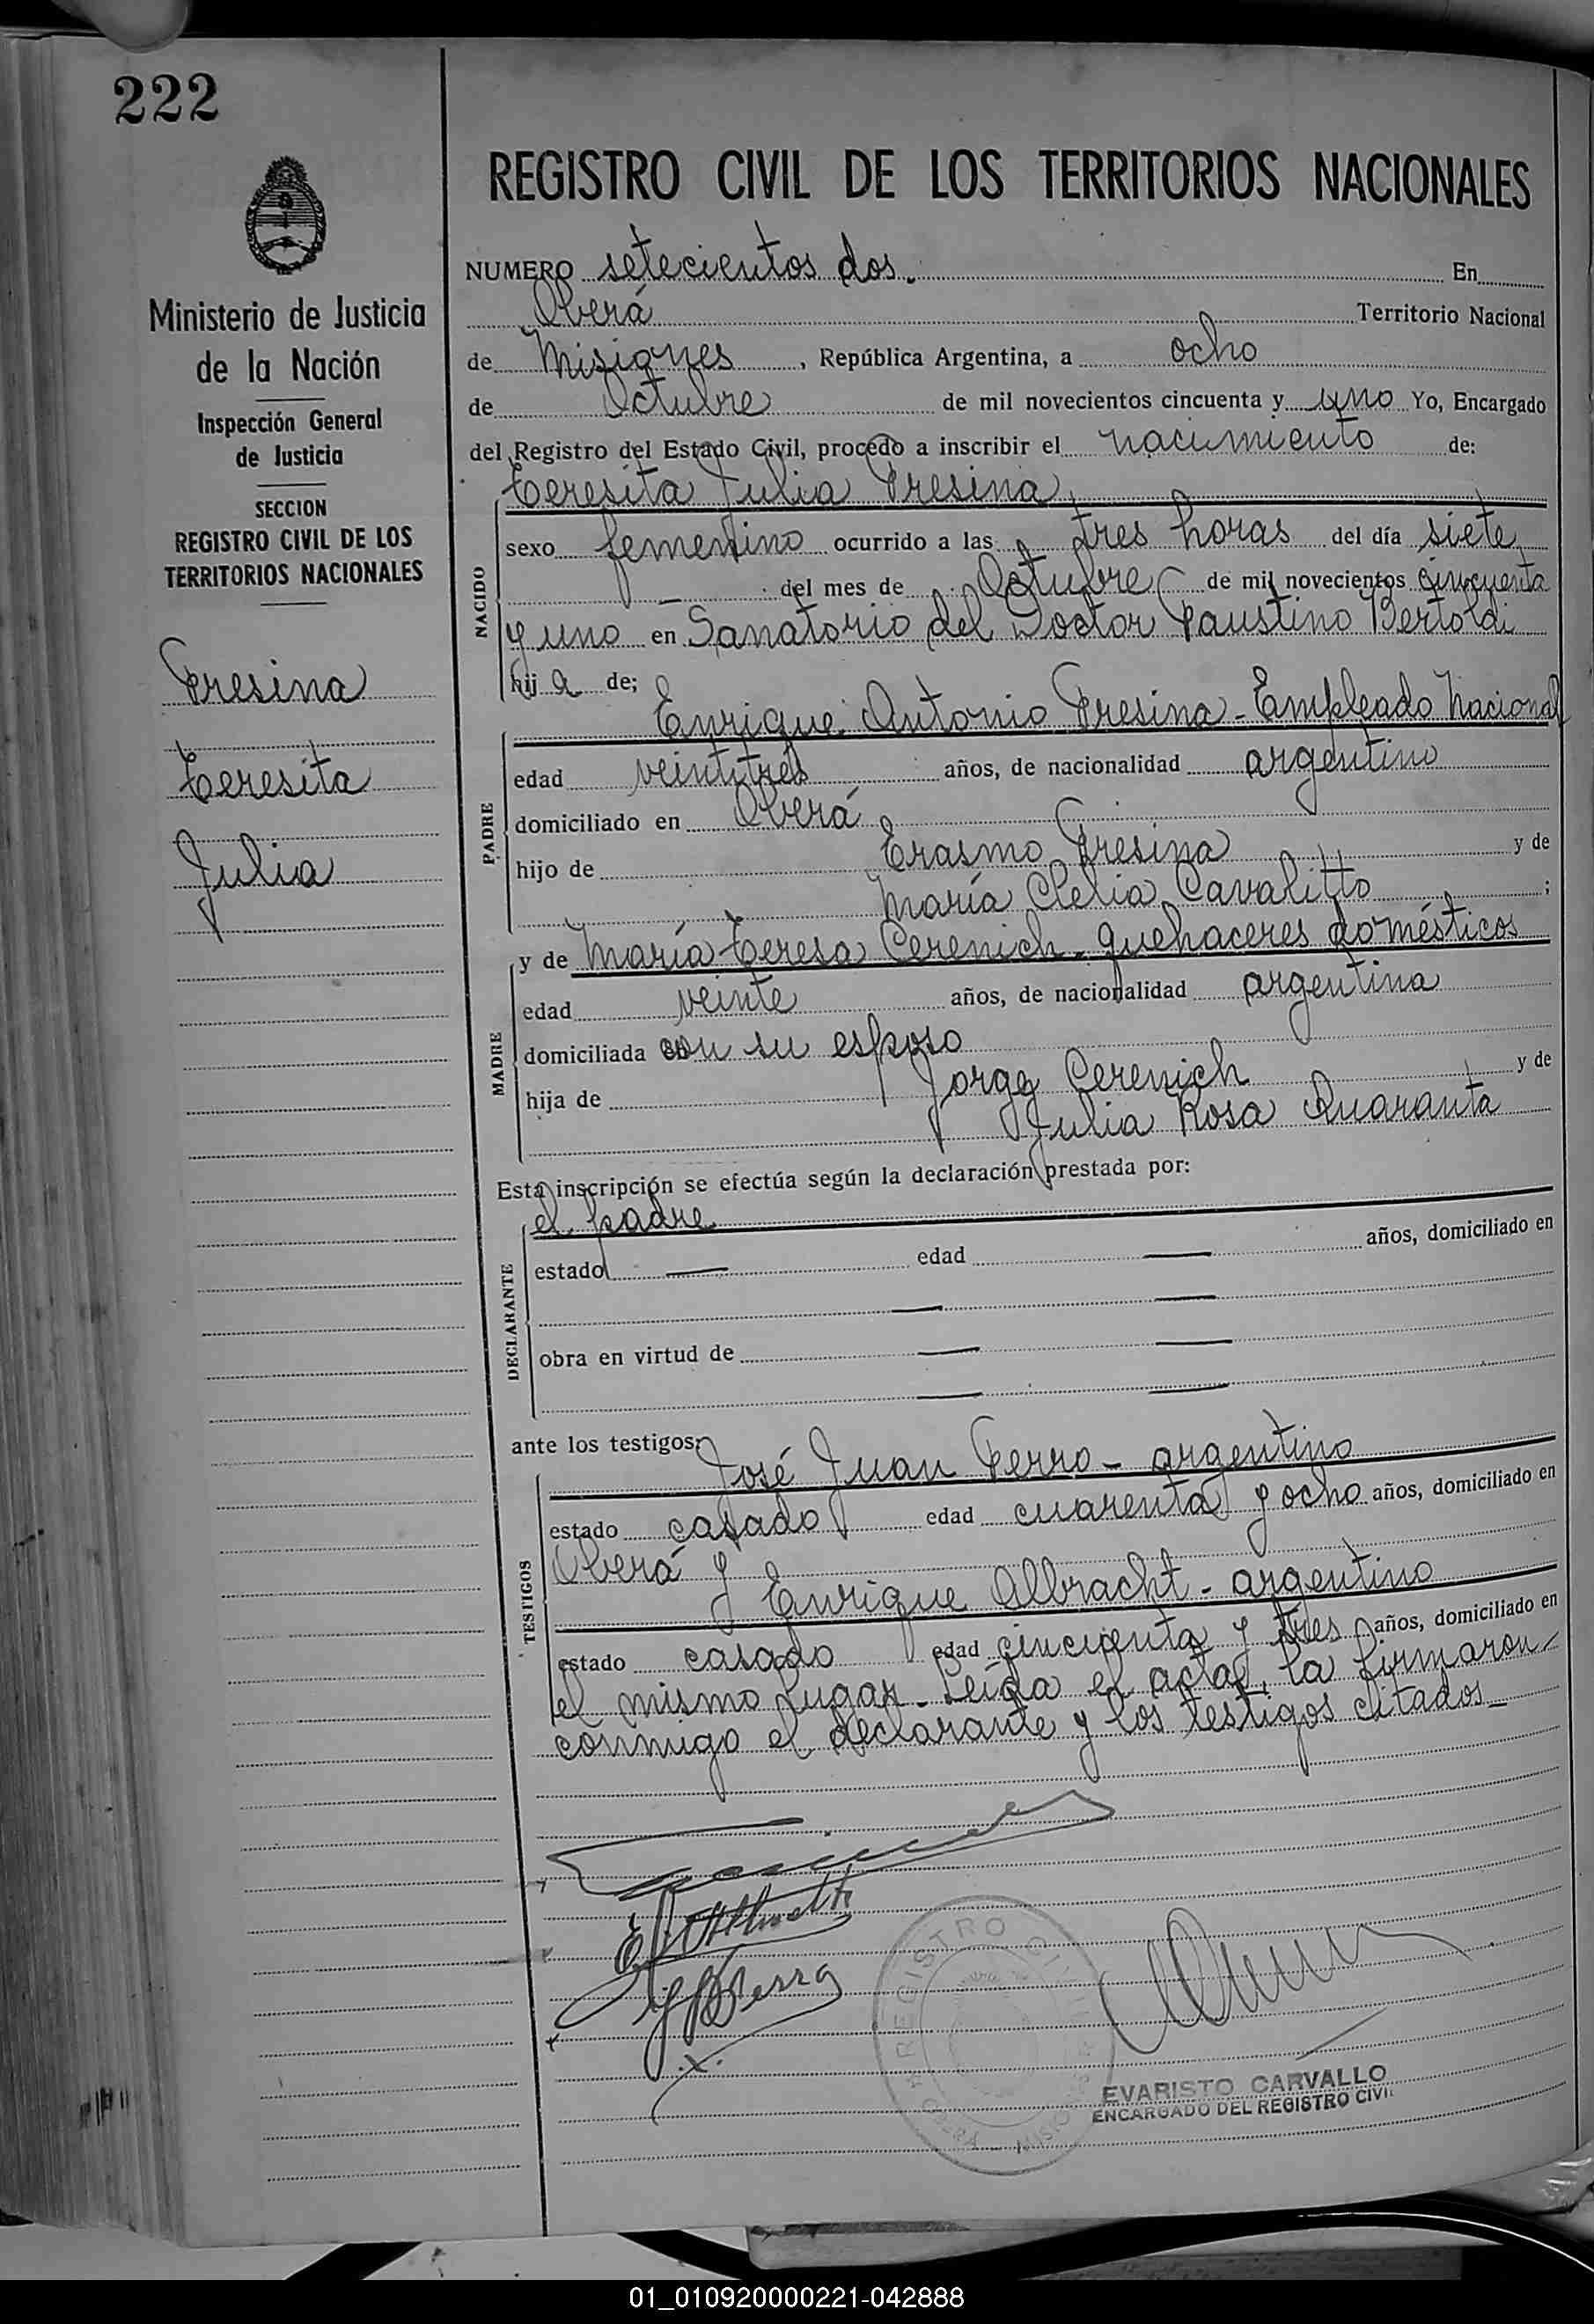 222
REGISTRO CIVIL DE LOS TERRITORIOS NACIONALES
Ministerio de Justicia
de la Nación
Inspección General
de Justicia
SECCION
REGISTRO CIVIL DE LOS
TERRITORIOS NACIONALES
Fresina
Teresita
Julia
NUMERO setecientos dos. En
Oberá Territorio Nacional
de Misiones, República Argentina, a ocho
de Octubre de mil novecientos cincuenta y uno Yo, Encargado
del Registro del Estado Civil, procedo a inscribir el nacimiento de:
Teresita Julia Fresina,
NACIDO
sexo femenino ocurrido a las tres horas del día siete
del mes de Octubre de mil novecientos cincuenta
y uno en Sanatorio del Doctor Faustino Bertoldi
hija de;
PADRE
Enrique Antonio Fresina - Empleado Nacional
edad veintitres años, de nacionalidad argentino
domiciliado en Oberá
hijo de Erasmo Fresina y de
María Clelia Cavalitto ;
MADRE
y de María Teresa Cerenich - quehaceres domésticos
edad veinte años, de nacionalidad argentina
domiciliada con su esposo
hija de Jorge Cerenich y de
Julia Rosa Quaranta
Esta inscripción se efectúa según la declaración prestada por:
el padre
DECLARANTE
estado — edad — años, domiciliado en
— —
obra en virtud de — —
— —
ante los testigos:
TESTIGOS
José Juan Ferro - argentino
estado casado edad cuarenta y ocho años, domiciliado en
Oberá y
Enrique Albracht - argentino
estado casado edad cincuenta y tres años, domiciliado en
el mismo lugar - Leída el acta, la firmaron
conmigo el declarante y los testigos citados -
REGISTRO CIVIL
OBERA - MISIONES
EVARISTO CARVALLO
ENCARGADO DEL REGISTRO CIVIL
01_010920000221-042888